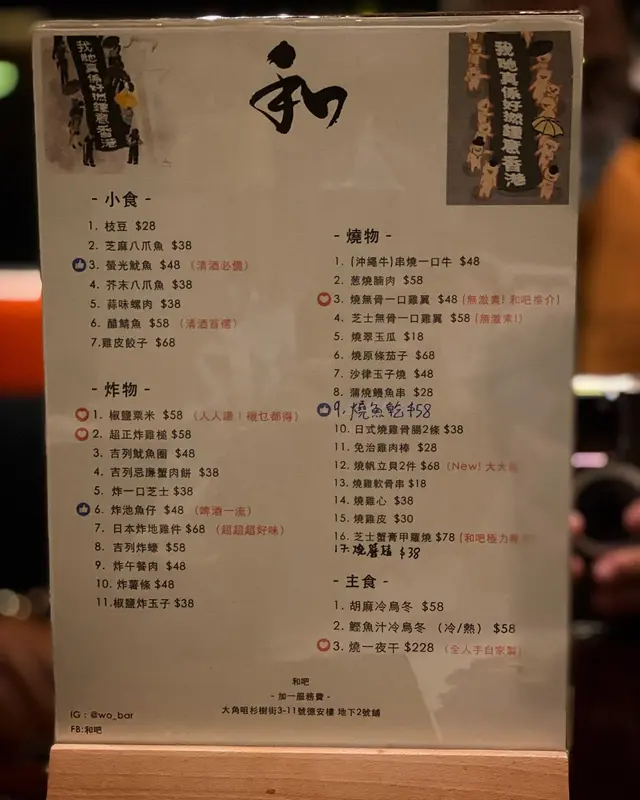 我哋真係好撚鍾意香港
和
我哋真係好撚鍾意香港
- 小食 -
1. 枝豆 $28
2. 芝麻八爪魚 $38
3. 螢光魷魚 $48 (清酒必備)
4. 芥末八爪魚 $38
5. 蒜味螺肉 $38
6. 醋鯖魚 $58 (清酒首選)
7.雞皮餃子 $68
- 炸物 -
1. 椒鹽粟米 $58 (人人讚！襯乜都得)
2. 超正炸雞槌 $58
3. 吉列魷魚圈 $48
4. 吉列忌廉蟹肉餅 $38
5. 炸一口芝士 $38
6. 炸池魚仔 $48 (啤酒一流)
7. 日本炸地雞件 $68 (超超超好味)
8. 吉列炸蠔 $58
9. 炸午餐肉 $48
10. 炸薯條 $48
11.椒鹽炸玉子 $38
- 燒物 -
1. (沖繩牛)串燒一口牛 $48
2. 蔥燒腩肉 $58
3. 燒無骨一口雞翼 $48 (無激素! 和吧推介)
4. 芝士無骨一口雞翼 $58 (無激素!)
5. 燒翠玉瓜 $18
6. 燒原條茄子 $68
7. 沙律玉子燒 $48
8. 蒲燒鰻魚串 $28
9. 燒魚乾 $58
10. 日式燒雞骨腸2條 $38
11. 免治雞肉棒 $28
12. 燒帆立貝2件 $68 (New! 大大
13. 燒雞軟骨串 $18
14. 燒雞心 $38
15. 燒雞皮 $30
16. 芝士蟹膏甲羅燒 $78 (和吧極力
17. 燒蘑菇 $38
- 主食 -
1. 胡麻冷烏冬 $58
2. 鰹魚汁冷烏冬 (冷/熱) $58
3. 燒一夜干 $228 (全人手自家製)
和吧
- 加一服務費 -
大角咀杉樹街3-11號德安樓 地下2號舖
IG : @wo_bar
FB:和吧